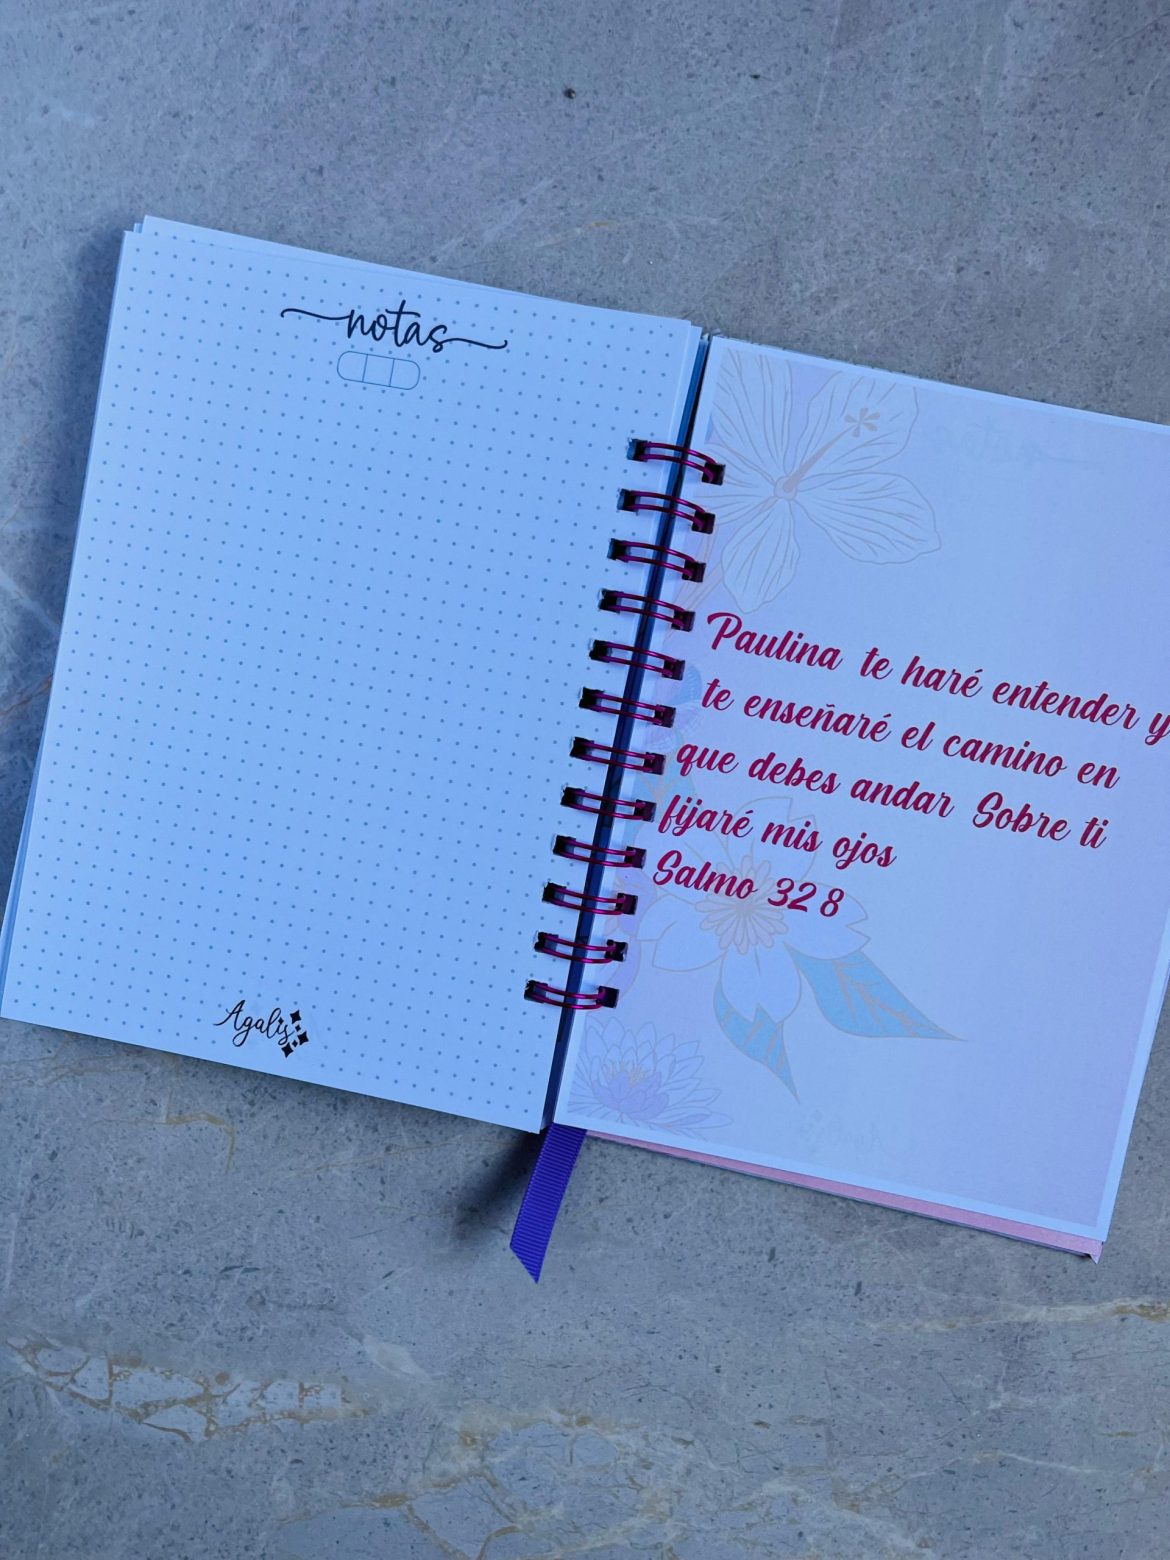 notas
Agalis
Paulina te haré entender y
te enseñaré el camino en
que debes andar Sobre ti
fijaré mis ojos
Salmo 32 8